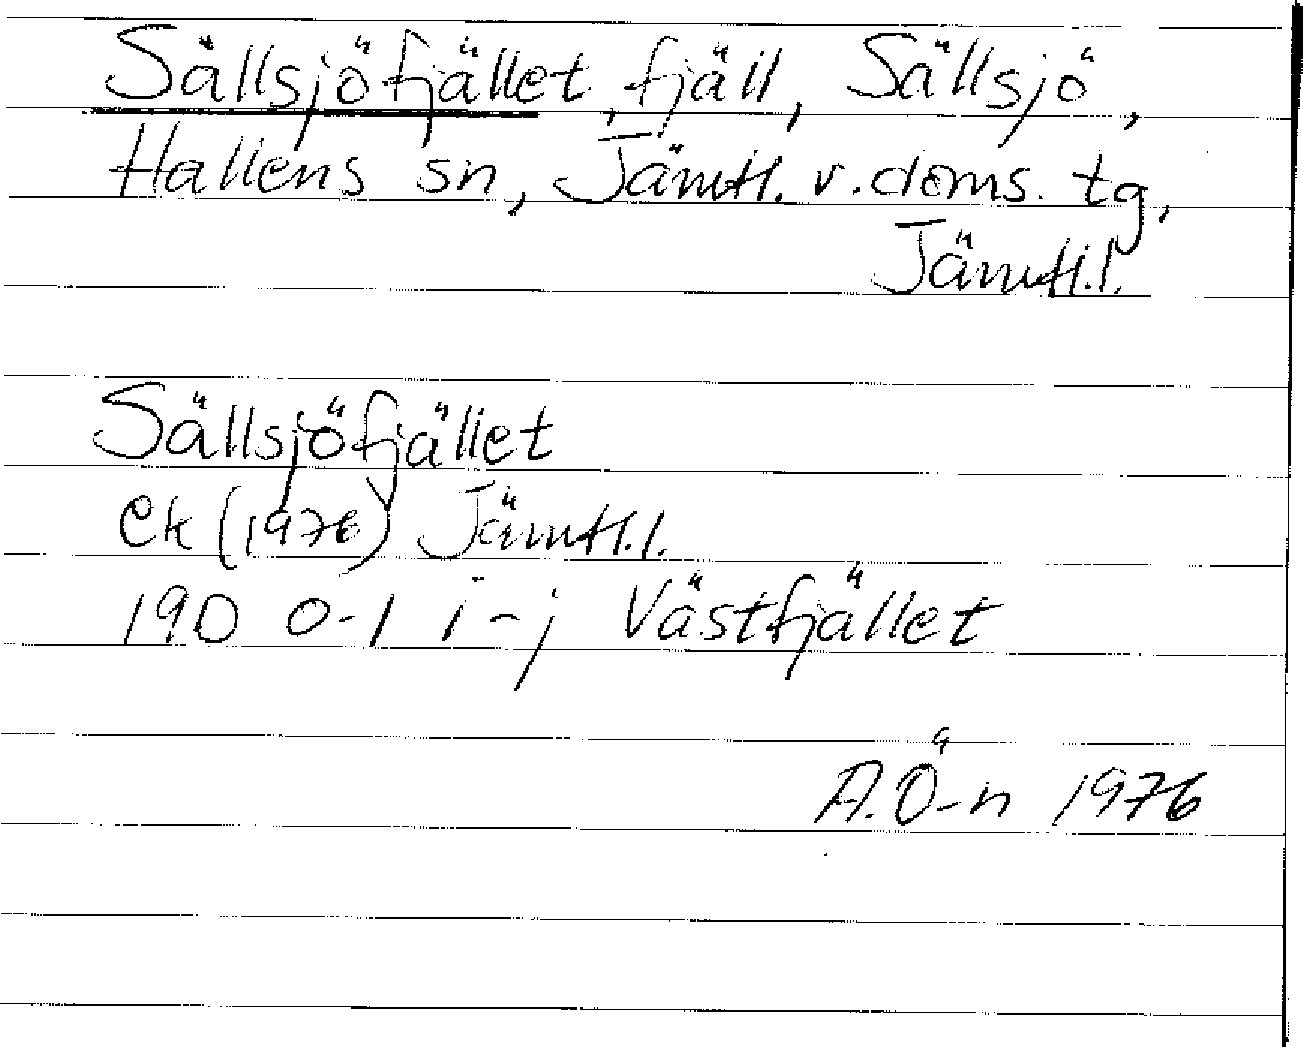 Sällsjöfjället, fjäll, Sällsjö,
Hallens sn, Jämtl. v. doms. tg,
Jämtl.l.
Sällsjöfjället
Ek (1976) Jämtl.l.
19D 0-1 i-j Västfjället
A.Ö-n 1976